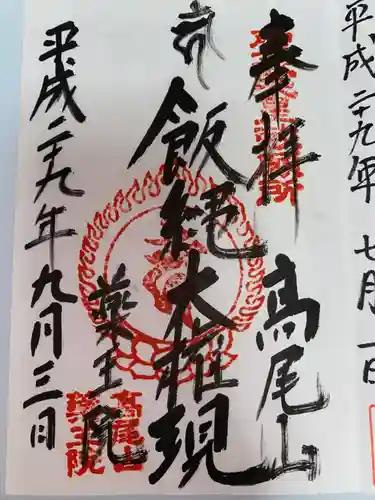 平成二十九年 七月一日
奉拝 高尾山
飯縄大権現
薬王院
平成二十九年九月三日
高尾山
薬王院